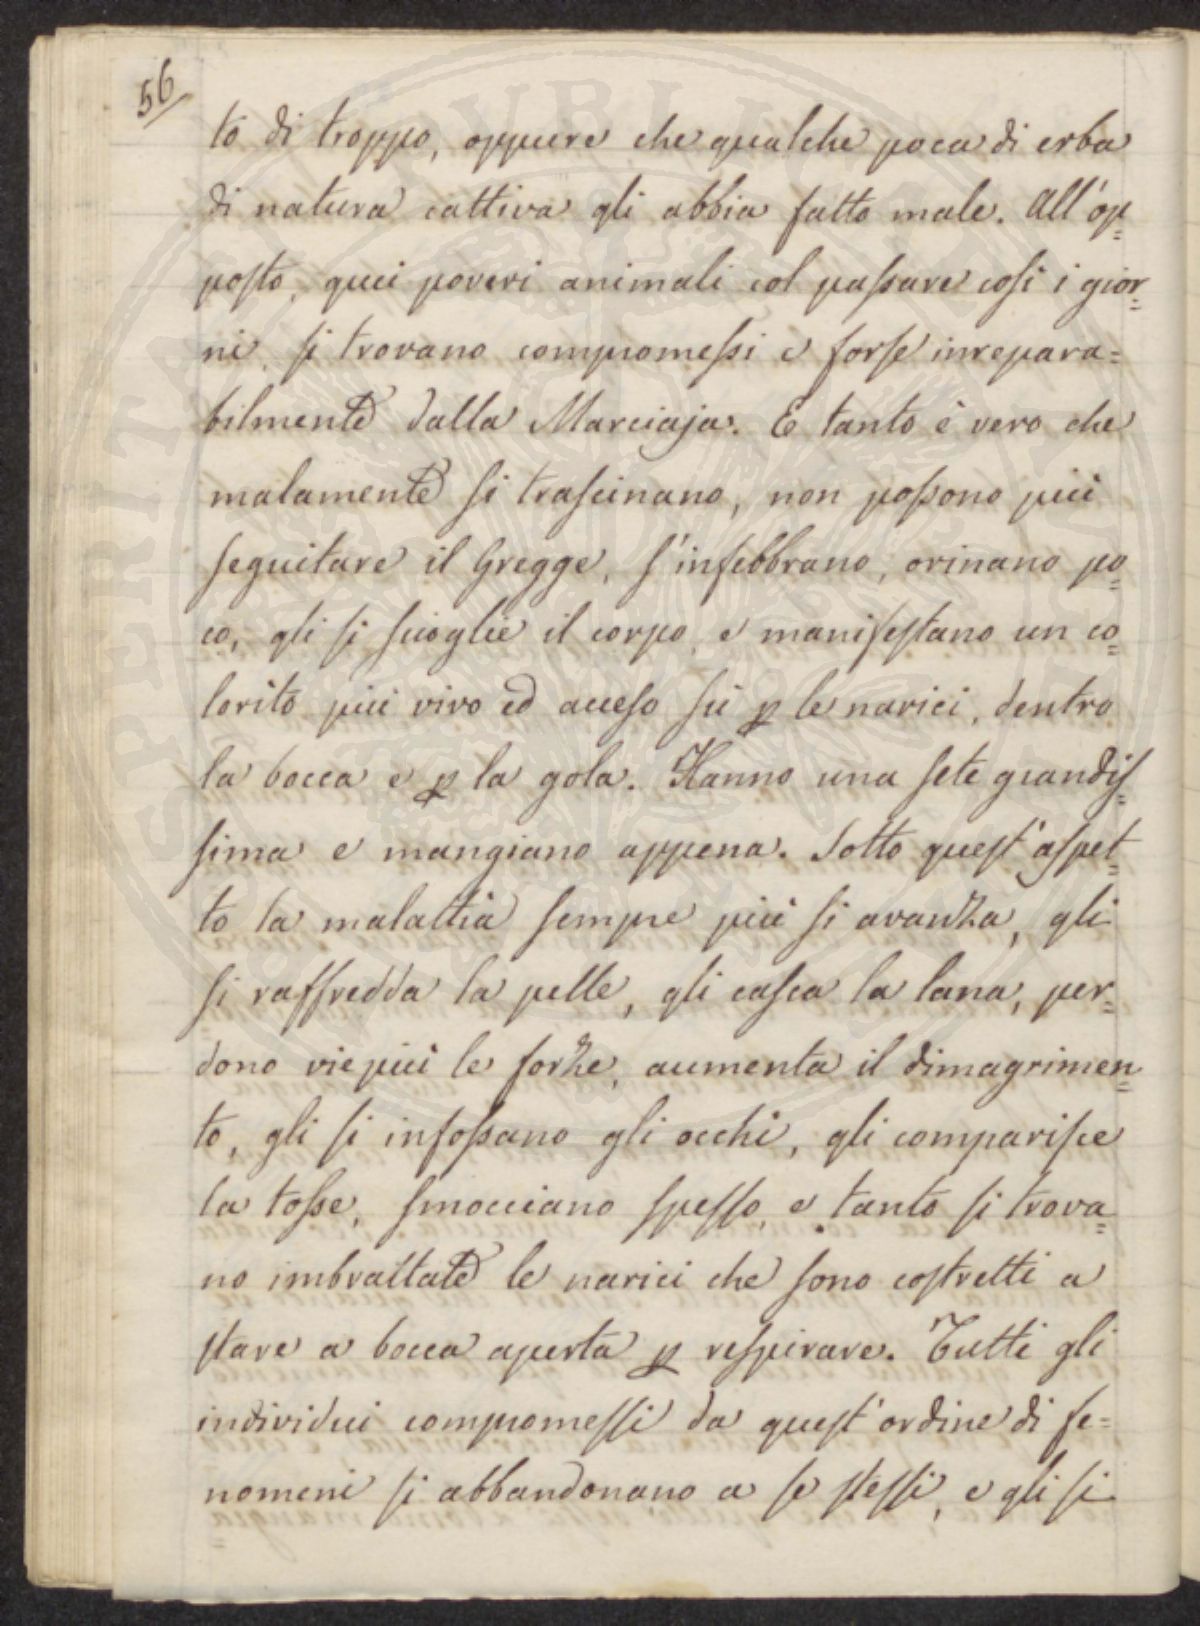 56
to di troppo, oppure che qualche poca di erba
di natura cattiva gli abbia fatto male. All'op=
posto, quei poveri animali col passare così i gior=
ni, si trovano compromessi e forse inrepara=
bilmente dalla Marciaja. E tanto è vero che
malamente si trascinano, non possono più
seguitare il Gregge, s'infebbrano, orinano po=
co, gli si scioglie il corpo, e manifestano un co=
lorito più vivo ed acceso su p le narici, dentro
la bocca e p la gola. Hanno una sete grandis=
sima e mangiano appena. Sotto quest'aspet=
to la malattia sempre più si avanza, gli
si raffredda la pelle, gli casca la lana, per=
dono viepiù le forze, aumenta il dimagrimen=
to, gli si infossano gli occhi, gli comparisce
la tosse, smocciano spesso, e tanto si trova=
no imbrattate le narici che sono costretti a
stare a bocca aperta p respirare. Tutti gli
individui compromessi da quest'ordine di fe=
nomeni si abbandonano a se stessi, e gli si